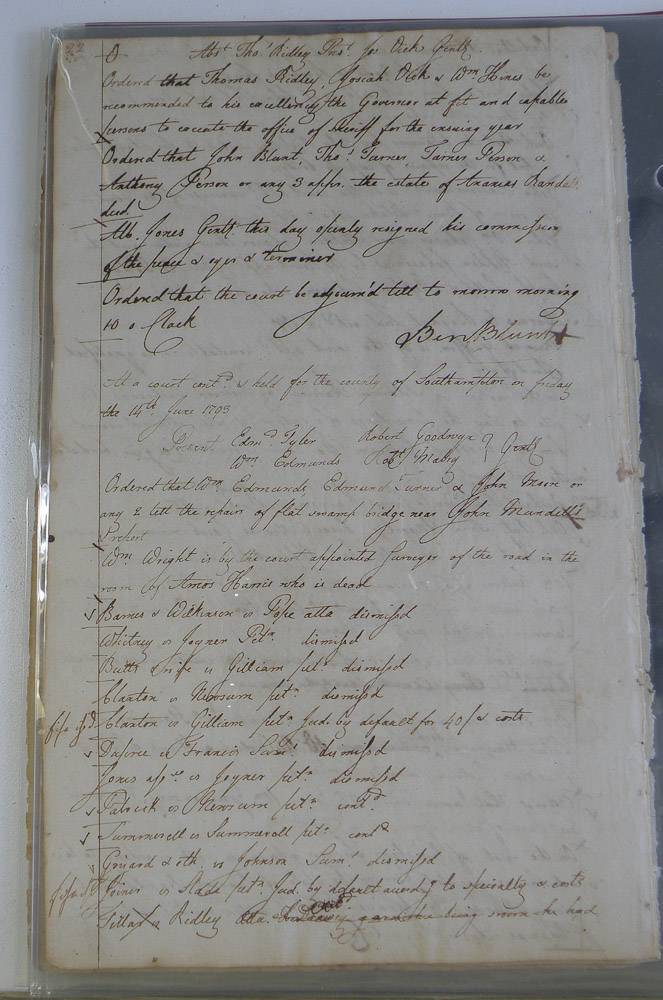 22
Abs.t Tho.s Ridley Pres.t Jo Dick Gent.
Ordered that Thomas Ridley, Josiah Dick & Wm Hines be
recommended to his excellency the Governor as fit and capable
persons to execute the office of Sheriff for the ensuing year
Ordered that John Blunt, Tho.s Turner, Turner Person &
Anthony Person or any 3 appr. the estate of Ananias Randal
decd.
Alb. Jones Gent. this day openly resigned his commission
of the peace & oyer & terminer
Ordered that the court be adjourn'd till to morrow morning
10 o Clock
Ben Blunt
At a court cont.d & held for the county of Southampton on friday
the 14th June 1793
Present Edm.d Tyler Robert Goodwyn Gent.
Wm Edmunds Rob.t Mabry
Ordered that Wm Edmunds, Edmund Turner & John Moore or
any 2 lett the repairs of flat swamp bridge near John Mundell's
& report
Wm Wright is by the court appointed Surveyor of the road in the
room of Amos Harris who is dead
Barnes & Wilkinson vs Pope atta dismissed
Whitney vs Joyner Pet.n dismissed
Butts & wife vs Gilliam pet.n dismissed
Claxton vs Newsum pet.n dismissed
Claxton vs Gilliam pet.n Jud. by default for 40/ & costs
Dupree vs Francis Sum.s dismissed
Jones ass.ee vs Joyner pet.n dismissed
Patrick vs Newsum pet.n cont.d
Summerell vs Summerell pet.n cont.d
Grizard & oth. vs Johnson Sum.s dismissed
fi fa Joiner vs Slade pet.n Jud. by default accord.g to specialty & costs
vs Ridley atta. garnishee being sworn she had